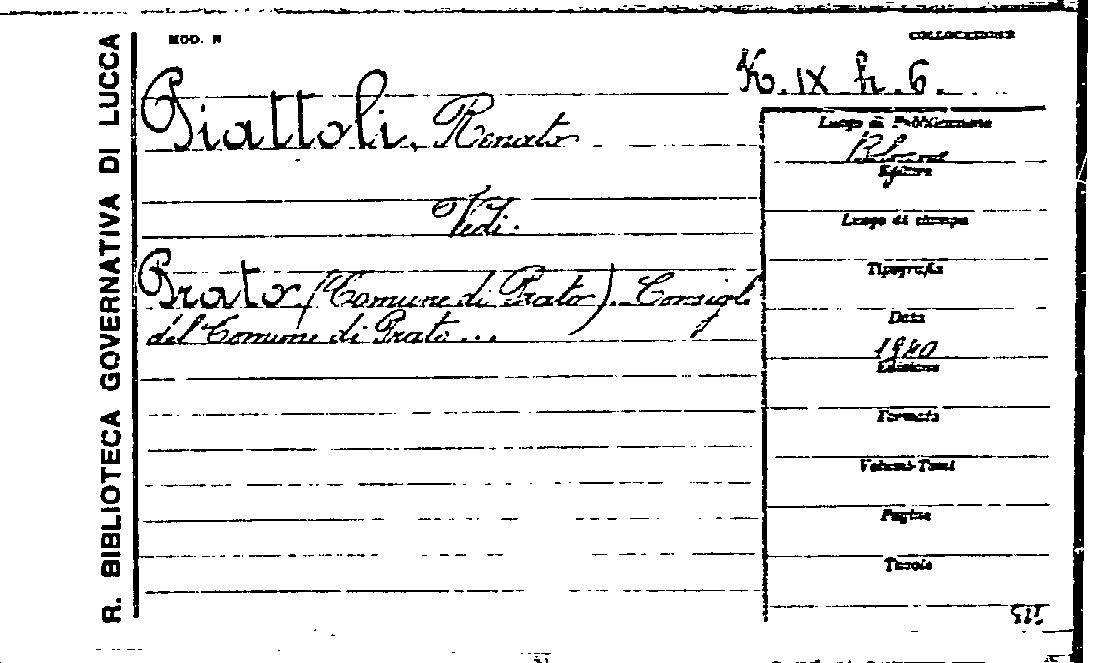 R. BIBLIOTECA GOVERNATIVA DI LUCCA
MOD. R
COLLOCAZIONE
K. IX h. 6.
Piattoli, Renato
Vedi:
Prato (Comune di Prato). Consigli
del Comune di Prato...
Luogo di Pubblicazione
Editore
Luogo di stampa
Tipografia
Data
1940
Edizione
Formato
Volumi-Tomi
Pagine
Tavole